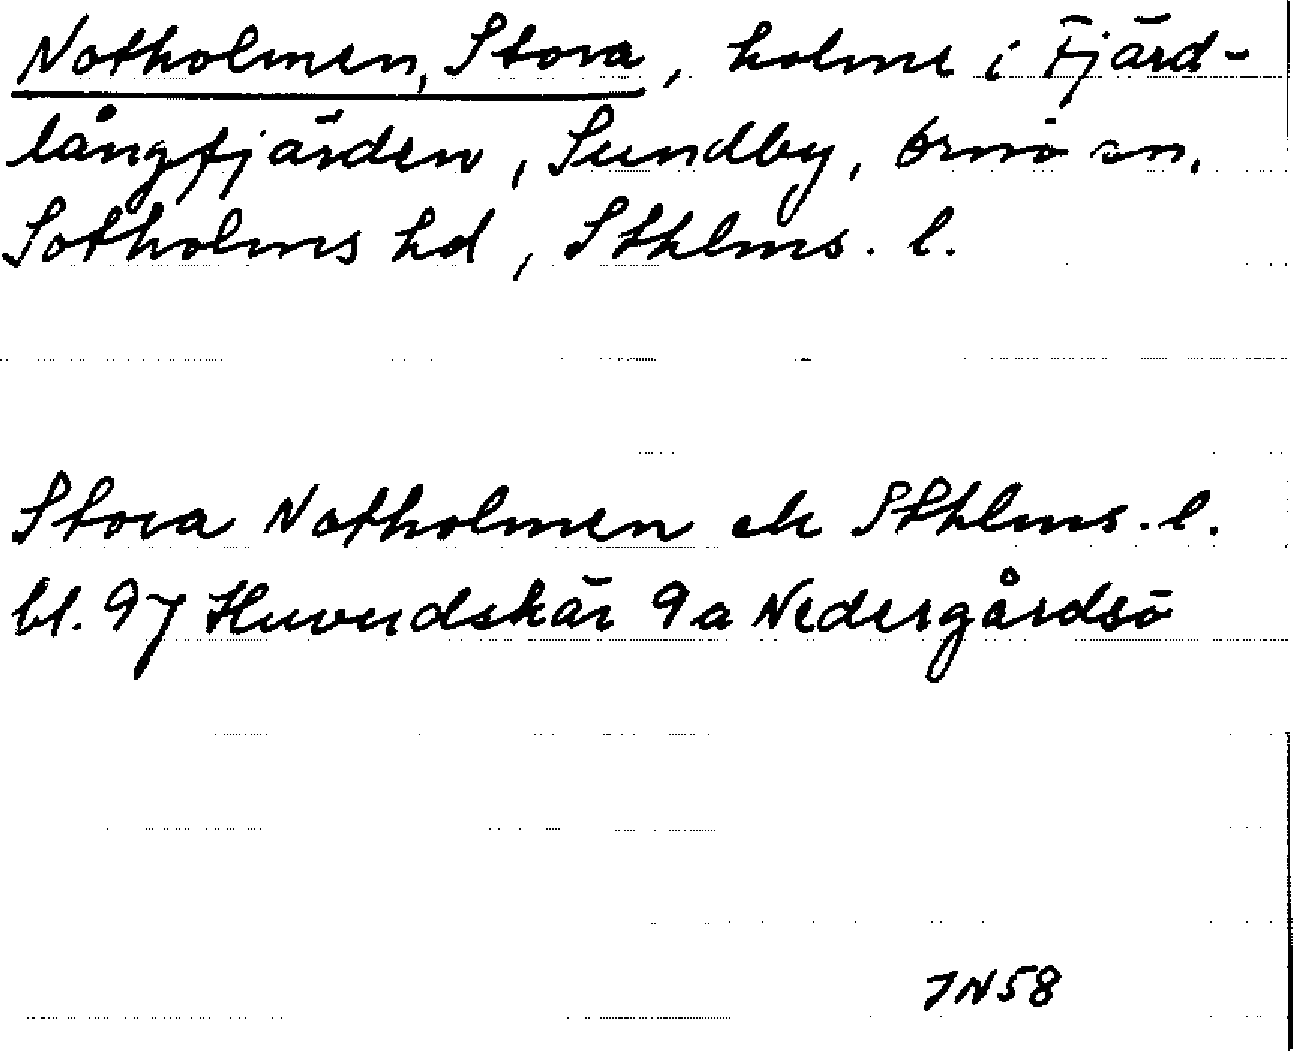 Notholmen, Stora, holme i Fjärd-
långfjärden, Sundby, Ornö sn,
Sotholms hd, Sthlms. l.
Stora Notholmen ek Sthlms. l.
bl. 97 Huvudskär 9a Nedergårdsö
JN58